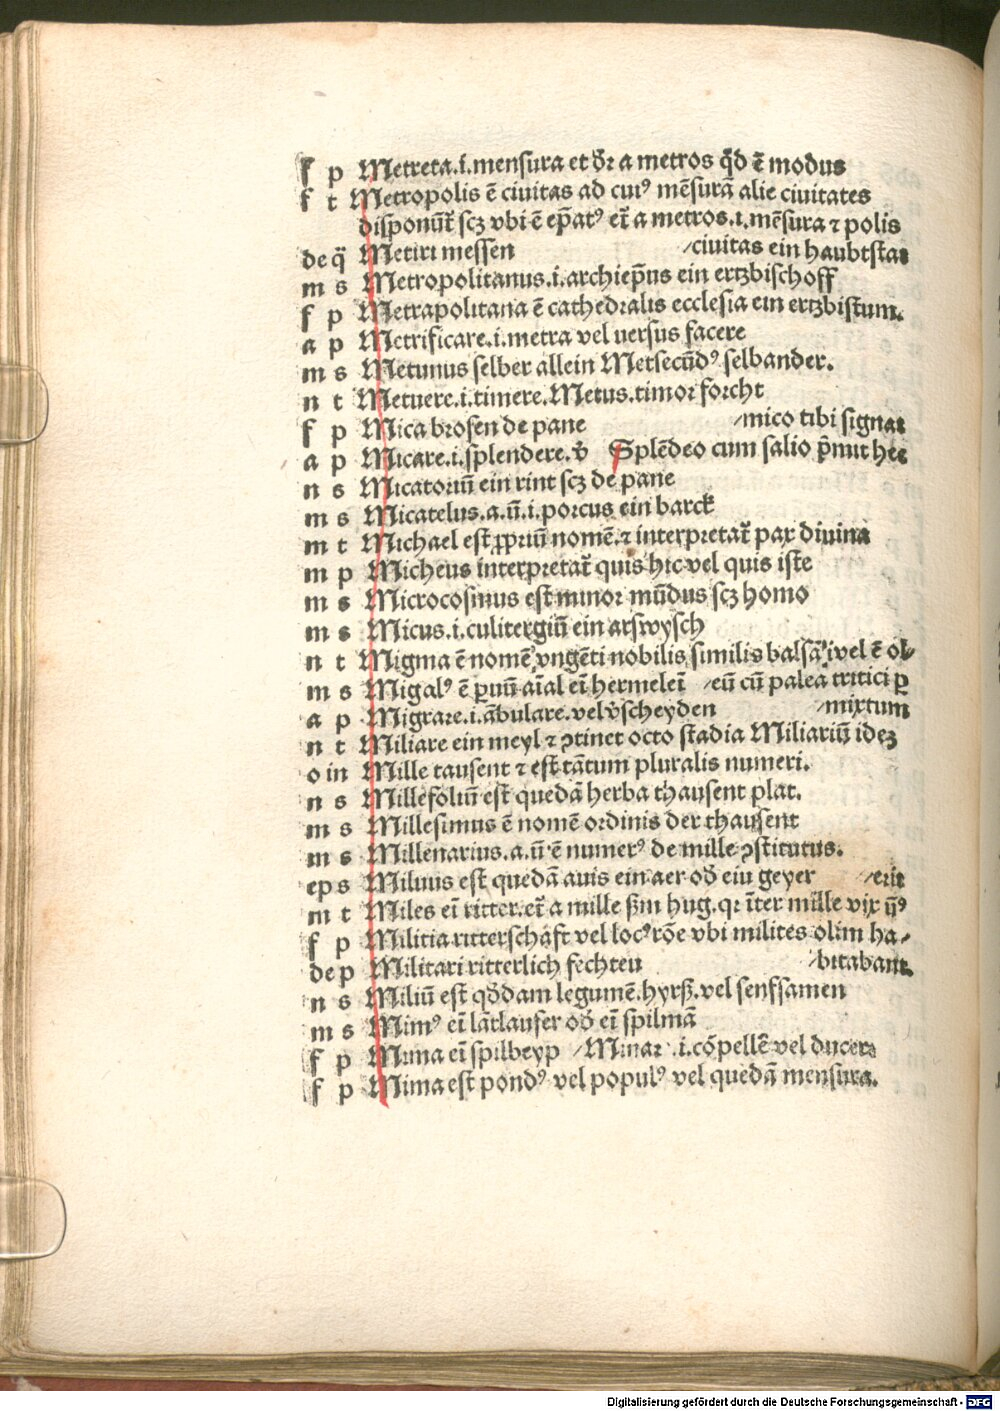 f p Metreta.i.mensura et dr̄ a metros qd̄ ē modus
f t Metropolis ē ciuitas ad cuiꝰ mēsurā alie ciuitates
disponūt̄ scꝫ vbi ē ep̄atꝰ et̄ a metros.i.mēsura ⁊ polis
de q̄ Metiri messen /ciuitas ein haubtstat
m s Metropolitanus.i.archiep̄us ein ertzbischoff
f p Metrapolitana ē cathedralis ecclesia ein ertzbistum.
a p Metrificare.i.metra vel uersus facere
m s Metunus selber allein Metsecūdꝰ selbander.
n t Metuere.i.timere.Metus.timor forcht
f p Mica brosen de pane /mico tibi signat
a p Micare.i.splendere.v̄ Splēdeo cum salio p̄mut hec
n s Micatoriū ein rint scꝫ de pane
m s Micatelus.a.ū.i.porcus ein barck
m t Michael est ꝓpriū nomē.⁊ interpretat̄ pax diuina
m p Micheus interpretat̄ quis hic vel quis iste
m s Microcosmus est minor mūdus scꝫ homo
m s Micus.i.culitergiū ein arswysch
n t Migma ē nomē vngēti nobilis similis balsāi vel ē ol/
m s Migalꝰ ē ꝑuū aīal eī hermeleī /eū cū palea tritici ꝑ
a p Migrare.i.ābulare.vel v̄scheyden /mixtum
n t Miliare ein meyl ⁊ ꝯtinet octo stadia Miliariū ideꝫ
o in Mille tausent ⁊ est tātum pluralis numeri.
n s Millefoliū est quedā herba thausent plat.
m s Millesimus ē nomē ordinis der thausent
m s Millenarius.a.ū ē numerꝰ de mille ꝯstitutus.
ep s Miluus est quedā auis ein aer od̄ eiu geyer /erit
m t Miles eī ritter.et̄ a mille ẜm hug.qꝛ īter mille vix ūꝰ
f p Militia ritterschaft vel locꝰ rōe vbi milites olim ha/
de p Militari ritterlich fechteu /bitabant.
n s Miliū est qd̄dam legumē.hyrß.vel senfsamen
m s Mimꝰ eī lātlaufer od̄ eī spilmā
f p Mima eī spilbeyp /Minar .i.cōpellē vel ducere
f p Mima est pondꝰ vel populꝰ vel quedā mensura.
Digitalisierung gefördert durch die Deutsche Forschungsgemeinschaft - DFG